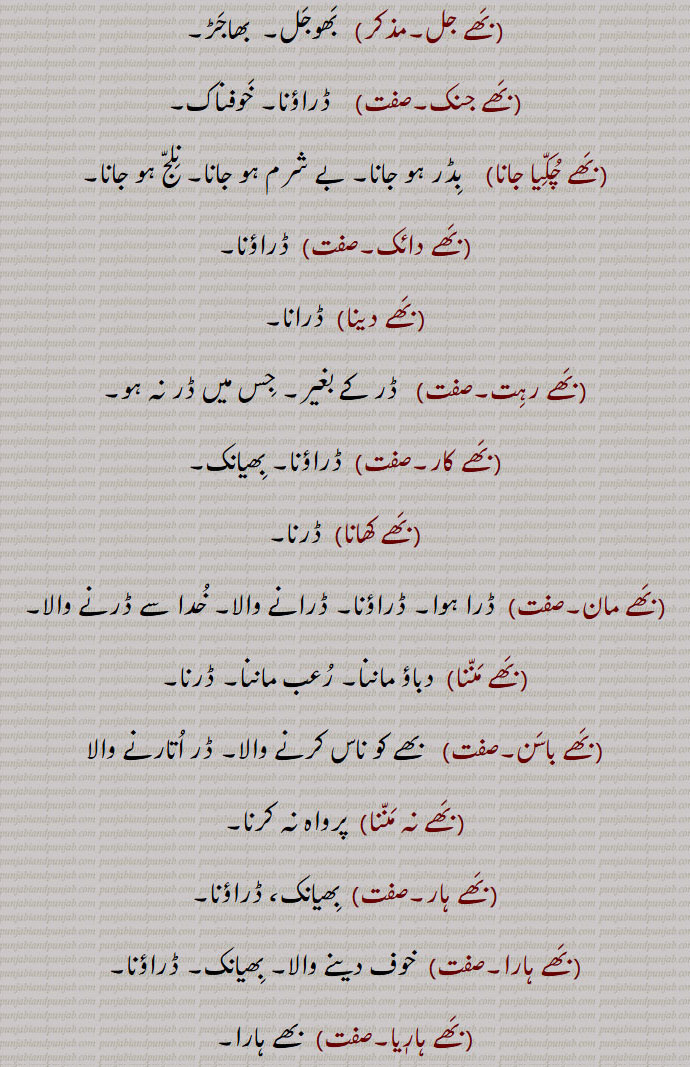 (بَھے جل۔مذکر) بَھوجَل۔ بھاجَڑ۔
(بَھے جنک۔صفت) ڈراؤنا۔ خَوفناک۔
(بَھے چُکِّیا جانا) نِڈر ہو جانا۔ بے شرم ہو جانا۔ نِلجّ ہو جانا۔
(بَھے دائک۔صفت) ڈراؤنا۔
(بَھے دینا) ڈرانا۔
(بَھے رہِت۔صفت) ڈر کے بغیر۔ جِس میں ڈر نہ ہو۔
(بَھے کار۔صفت) ڈراؤنا۔ بِھیانک۔
(بَھے کھانا) ڈرنا۔
(بَھے مان۔صفت) ڈرا ہوا۔ ڈراؤنا۔ ڈرانے والا۔ خُدا سے ڈرنے والا۔
(بَھے مَنّنا) دباؤ ماننا۔ رُعب ماننا۔ ڈرنا۔
(بَھے باسَن۔صفت) بھے کو ناس کرنے والا۔ ڈر اُتارنے والا
(بَھے نہ مَنّنا) پرواہ نہ کرنا۔
(بَھے ہار۔صفت) بِھیانک، ڈراؤنا۔
(بَھے ہارا۔صفت) خوف دینے والا۔ بِھیانک۔ ڈراؤنا۔
(بَھے ہارِیا۔صفت) بھے ہارا۔